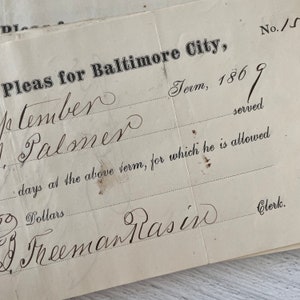 Pleas for
Pleas for Baltimore City,
No. 15
ptember Term, 1869
Palmer served
days at the above term, for which he is allowed
Dollars
Freeman Rasin Clerk.